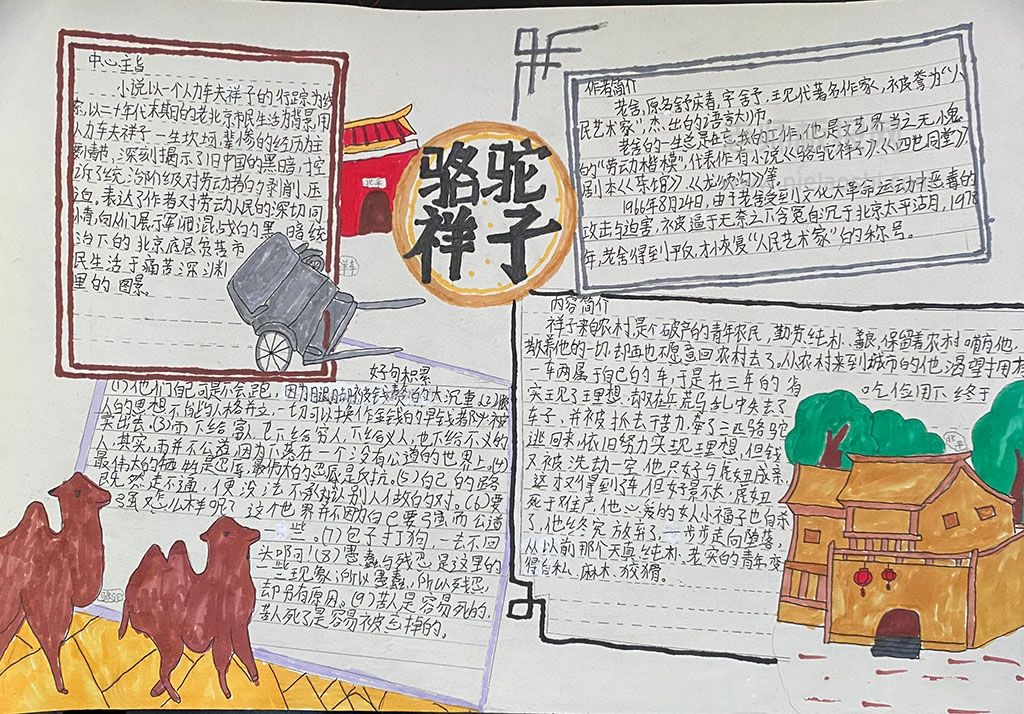 骆驼
祥子
北平
中心主旨
小说以一个人力车夫祥子的行踪为线
索,以二十年代末期的老北京市民生活为背景,用
人力车夫祥子一生坎坷、悲惨的经历为主
要情节,深刻揭示了旧中国的黑暗,控
诉了统治阶级对劳动者的剥削、压
迫,表达了作者对劳动人民的深切同
情,向人们展示军阀混战的黑暗统
治下的北京底层贫苦市
民生活于痛苦深渊
里的图景。
洋车
作者简介
老舍,原名舒庆春,字舍予,现代著名作家,被誉为“人
民艺术家”,杰出的语言大师。
老舍的一生总是在忘我的工作,他是文艺界当之无愧
的“劳动楷模”,代表作有小说《骆驼祥子》、《四世同堂》,
剧本《茶馆》、《龙须沟》等。
1966年8月24日,由于老舍受到文化大革命运动中恶毒的
攻击与迫害,被逼于无奈之下含冤自沉于北京太平湖,1978
年,老舍得到平反,才恢复“人民艺术家”的称号。
好句积累
(1)他们自己可是不会跑,因为腿脚被钱赘的太沉重(2)
人的思想不
出去。(3)雨下给富人,也下给穷人,下给义人,也下给不义的
人,其实,雨并不公道,因为下落在一个没有公道的世界上。(4)
最伟大的牺牲是忍辱,最伟大的忍辱是反抗。(5)自己的路
既然走不通,便没法不承认别人做的对。(6)要
强又怎么样呢?这个世界并不因为自己要强而公道
一些。(7)包子打狗,一去不回
头啊!(8)愚蠢与残忍是这里的
一些现象;所以愚蠢,所以残忍,
却另有原因。(9)苦人是容易死的,
苦人死了是容易被忘掉的。
骆驼
内容简介
祥子来自农村,是个破产的青年农民,勤劳、纯朴、善良,保留着农村哺育他,
教养他的一切,却再也不愿意回农村去了。从农村来到城市的他,渴望拥有
一车两属于自己的车,于是在三年的省吃俭用下终于
实现了理想,却又在兵荒马乱中失去了
车子,并被抓去干苦力,牵了三匹骆驼
逃回来,依旧努力实现理想,但钱
又被洗劫一空,他只好与虎妞成亲,
这才又得到了车,但好景不长,虎妞
死于难产,他心爱的女人小福子也自杀
了,他终究放弃了,一步步走向堕落,
从以前那个天真、纯朴、老实的青年变
得自私、麻木、狡猾。
北平